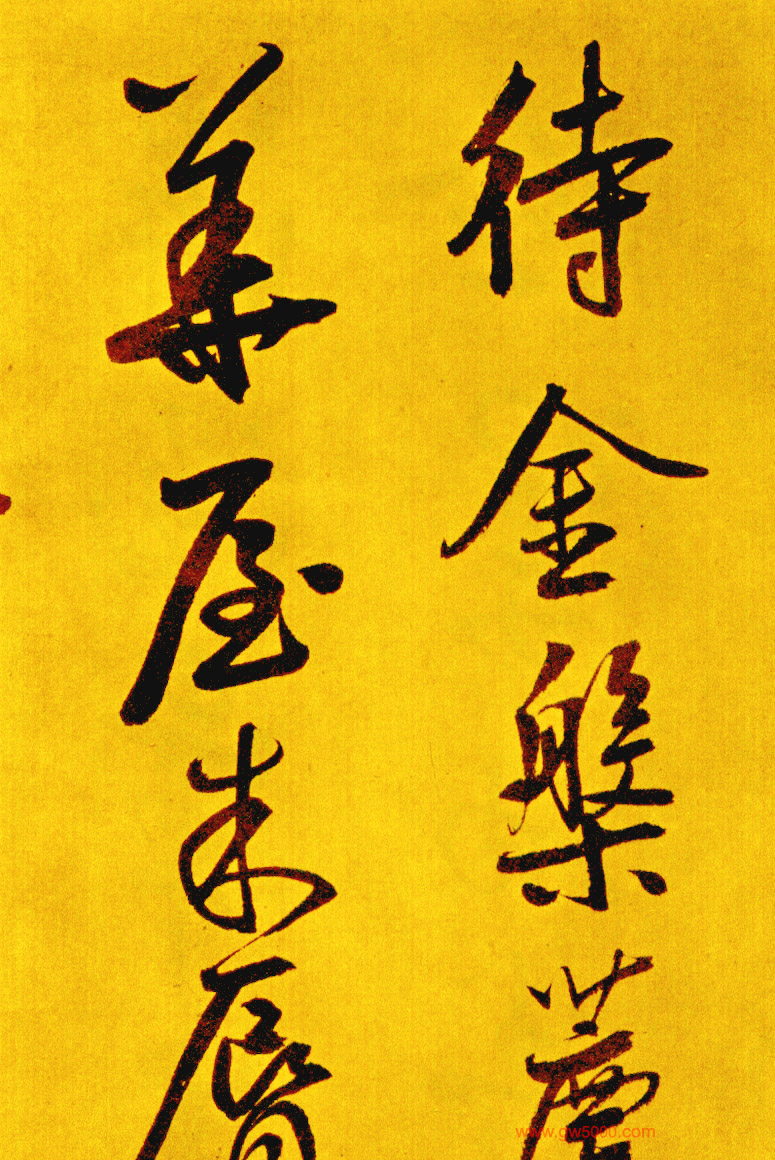 待金槃薦
華屋朱脣
www.gw5000.com